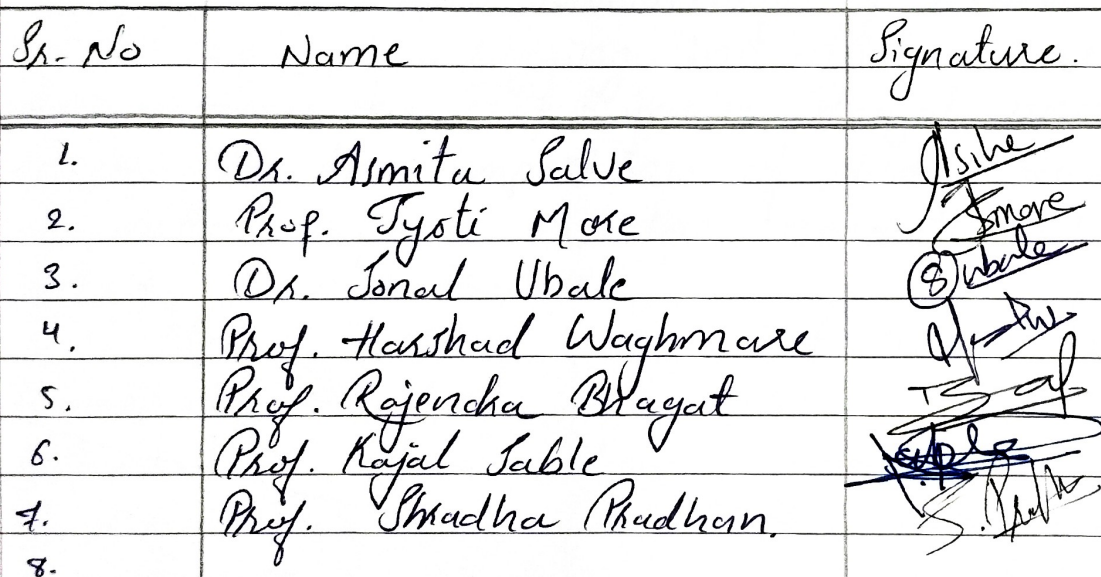 Sr. No Name Signature.
1. Dr. Asmita Salve
2. Prof. Jyoti More Smore
3. Dr. Sonal Ubale Subale
4. Prof. Harshad Waghmare
5. Prof. Rajendra Bhagat
6. Prof. Kajal Sable
7. Prof. Shradha Pradhan.
8.